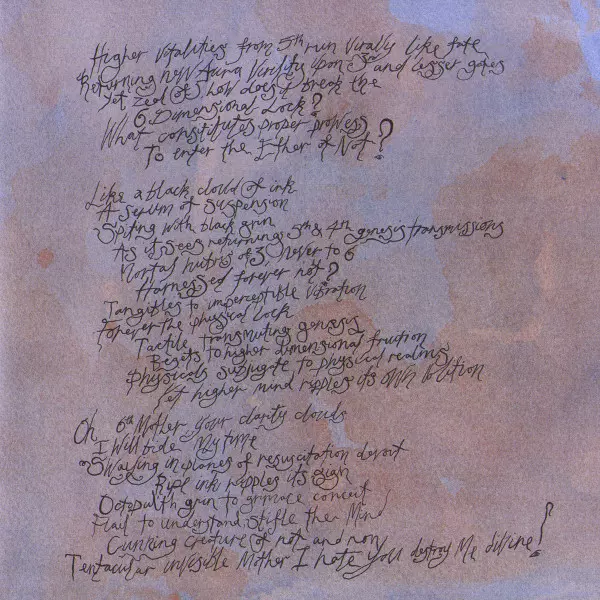 Higher vitalities from 5th run virally like fate
Returning new Aura Virility upon 3rd and lesser gates
Yet zeal of 5 how does it break the
6 Dimensional Lock?
What constitutes proper prowess
To enter the Ether of Not?
Like a black cloud of ink
A serum of suspension
Spiting with black grin
As it sees returning 5th & 4th genesis transmissions
Mortal of 5 never to 6
Harnessed forever not?
Tangibles to imperceptible vibration
Forever the physical lock
Tactile transmuting geneses
Begets to higher dimensional fruition
Physicals subjugate to physical realings
Yet higher mind ripples its own volition
Oh, 6th Mother your clarity clouds
I Will bide My time
Swaying in planes of resuscitation devout
Ripe ink ripples its sigh
grin to grimace conceit
Flail to understand stifle the Mind
Cunning creature of not and non
Tentacular invisible Mother I hate you destroy Me divine!